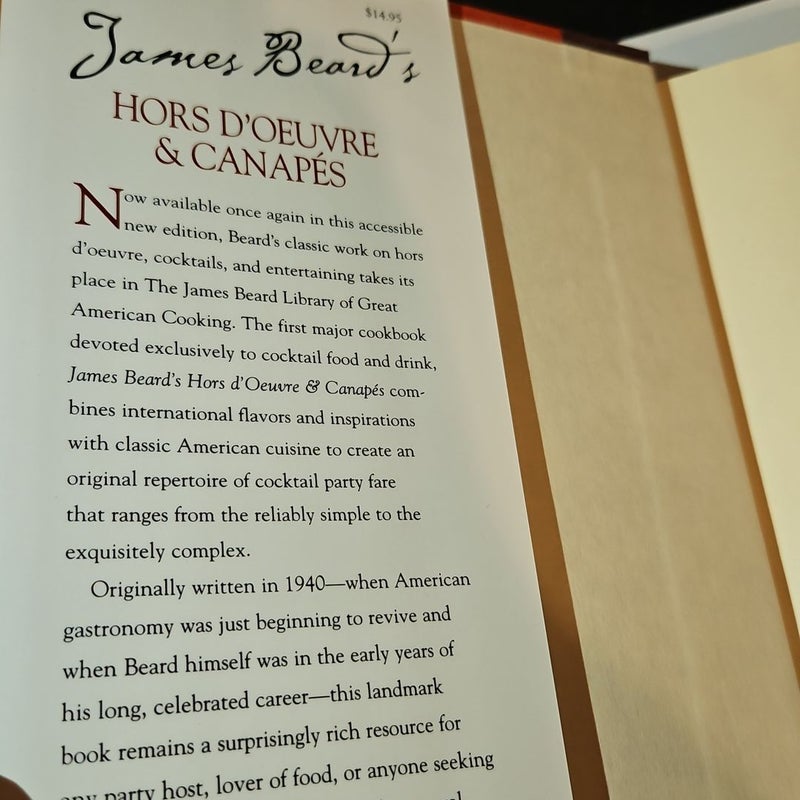 $14.95
James Beard's
HORS D'OEUVRE
& CANAPÉS
Now available once again in this accessible
new edition, Beard's classic work on hors
d'oeuvre, cocktails, and entertaining takes its
place in The James Beard Library of Great
American Cooking. The first major cookbook
devoted exclusively to cocktail food and drink,
James Beard's Hors d'Oeuvre & Canapés com-
bines international flavors and inspirations
with classic American cuisine to create an
original repertoire of cocktail party fare
that ranges from the reliably simple to the
exquisitely complex.
Originally written in 1940—when American
gastronomy was just beginning to revive and
when Beard himself was in the early years of
his long, celebrated career—this landmark
book remains a surprisingly rich resource for
any party host, lover of food, or anyone seeking